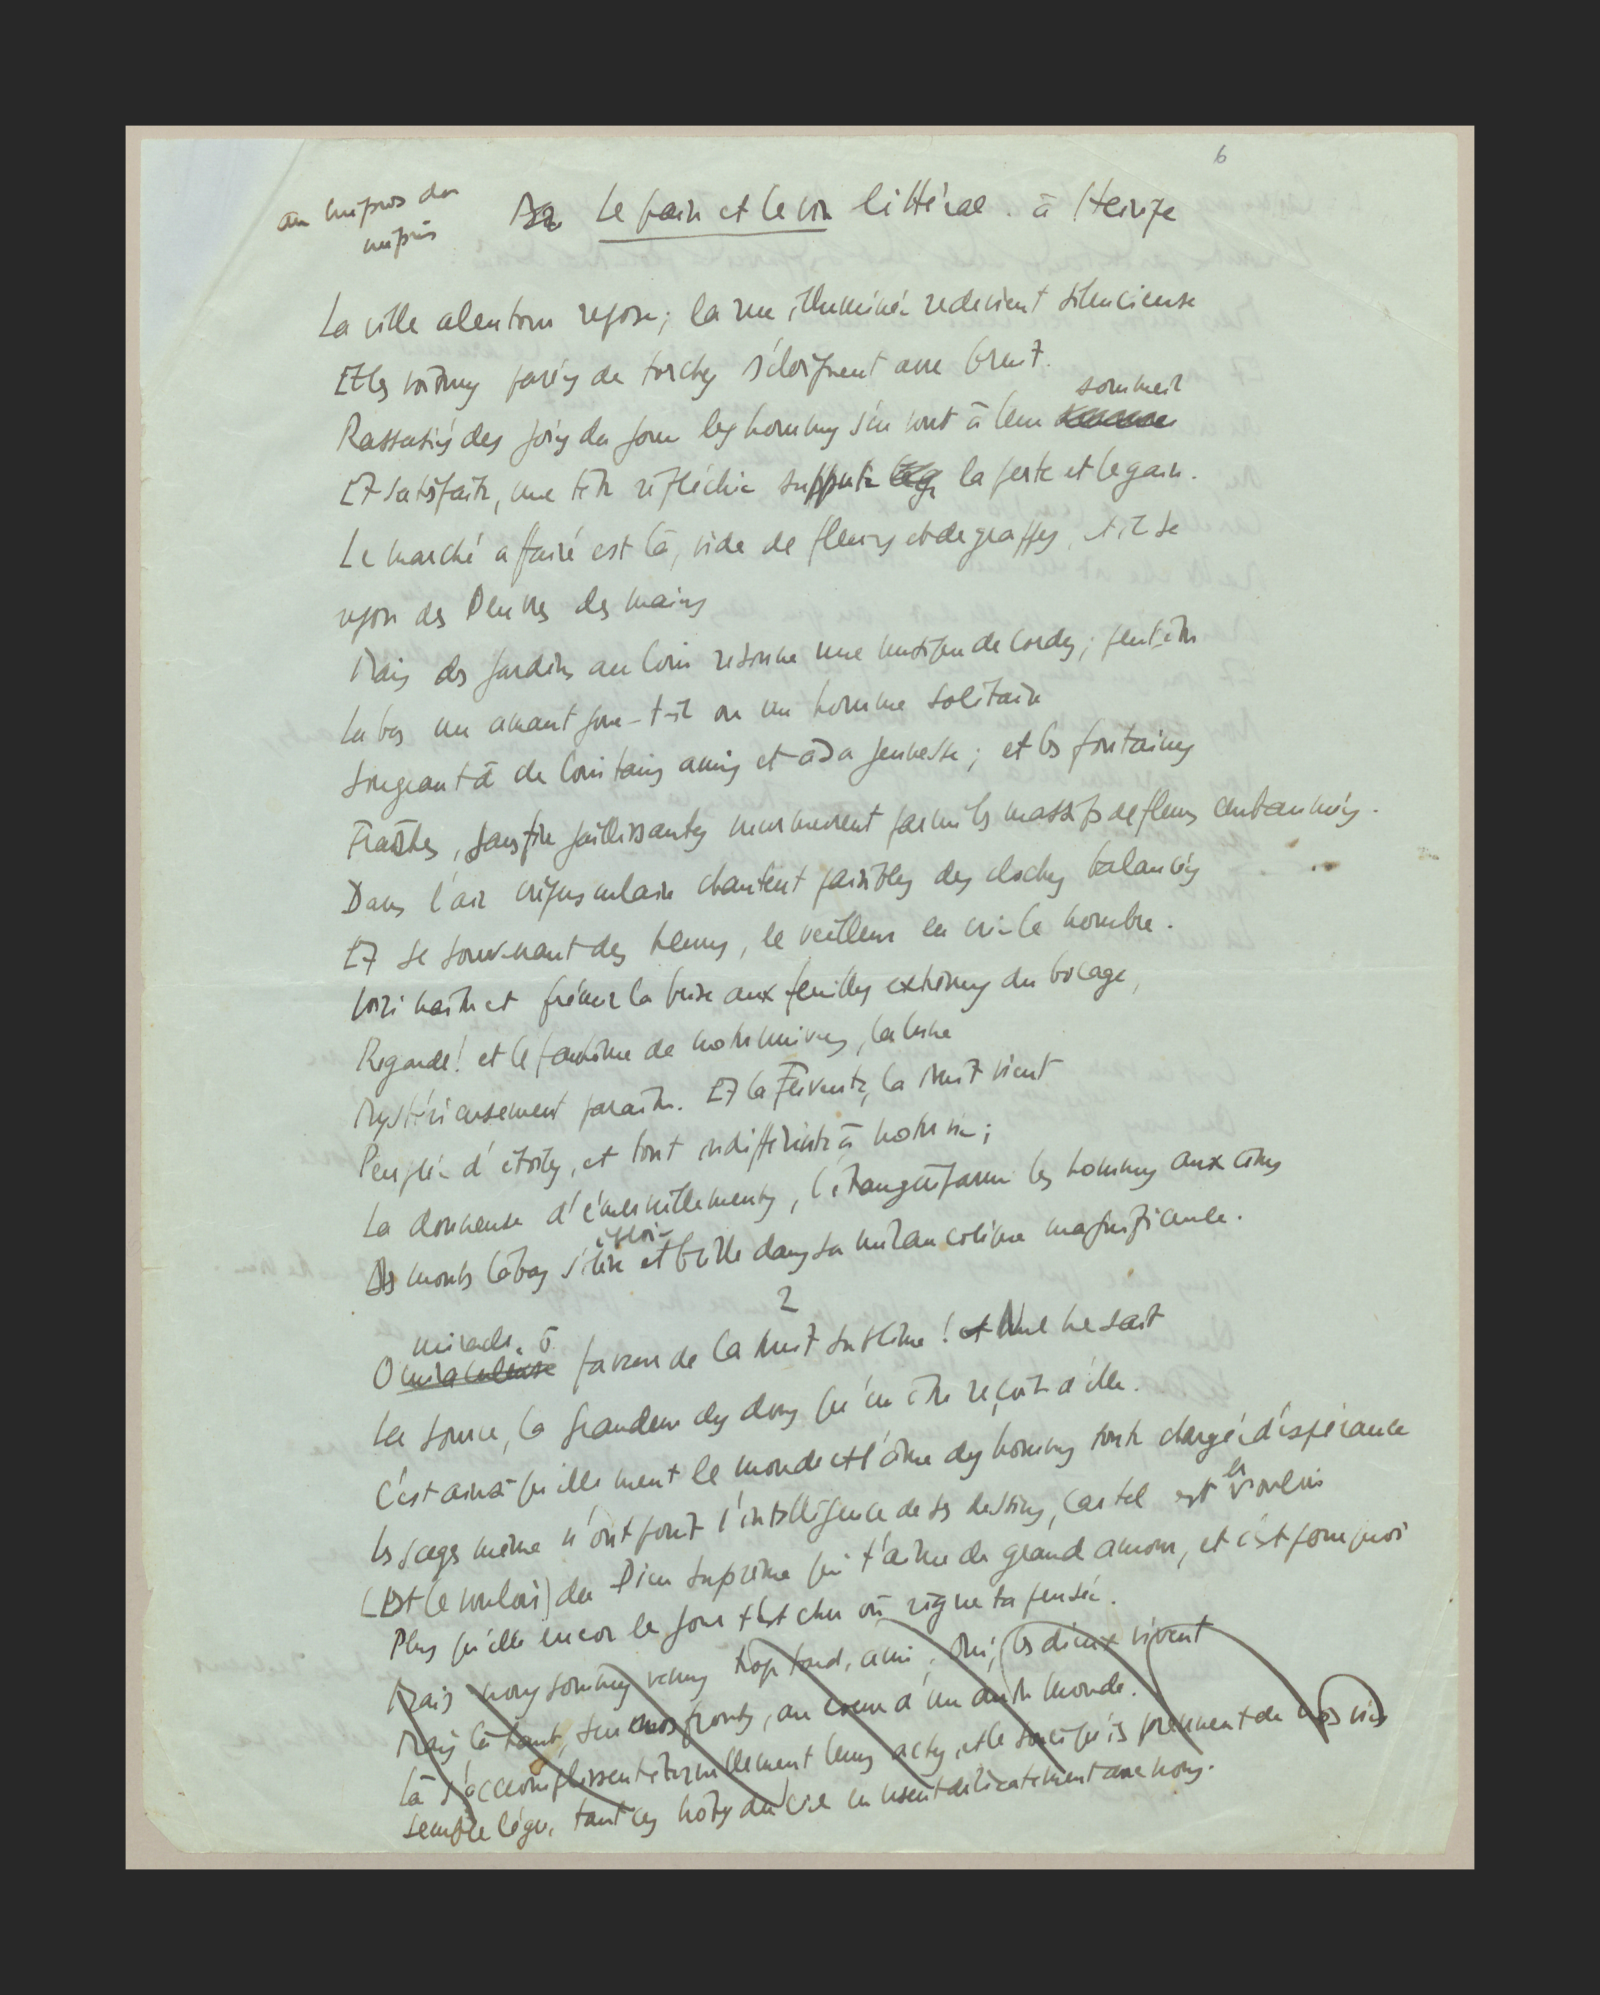 6
au mépris du
mépris
Le pain et le vin littéral. à Heinze
La ville alentour repose ; la rue illuminée redevient silencieuse
Et les voitures parées de torches s'éloignent avec bruit.
sommeil
Rassasiés des joies du jour les hommes s'en vont à leur
Et satisfaite, une tête réfléchie suppute la perte et le gain.
Le marché affairé est là, vide de fleurs et de grappes, et il se
repose des œuvres des mains
Mais des jardins au loin résonne une musique de cordes ; peut-être
La bas un amant joue-t-il ou un homme solitaire
Songeant à de lointains amis et à sa jeunesse ; et les fontaines
Fraîches, sans fin jaillissantes murmurent parmi les massifs de fleurs embaumés.
Dans l'air crépusculaire chantent paisibles des cloches balancées
Et se souvenant des heures, le veilleur en crie le nombre.
Voici naître et frémir la brise aux feuilles extrêmes du bocage,
Regarde ! et le fantôme de notre univers, la lune
Mystérieusement paraître. Et la Fervente, la Nuit vient
Peuplée d'étoiles, et tout indifférente à notre vie ;
La donneuse d'émerveillements, l'étrangère parmi les hommes aux cimes
éploie
Des monts là bas s'élève et brille dans sa mélancolique magnificence.
2
miracle, ô
O miraculeuse faveur de la Nuit sublime ! et Nul ne sait
La source, la grandeur des dons qu'un être reçoit d'elle.
C'est ainsi qu'elle meut le monde et l'âme des hommes toute chargée d'espérance
le
Les sages même n'ont point l'intelligence de ses desseins, car tel est vouloir
(Est le vouloir) du Dieu suprême qui t'aime de grand amour, et c'est pourquoi
Plus qu'elle encor le jour t'est cher où règne ta pensée.
Mais nous sommes venus trop tard, ami. Oui, les dieux vivent
Mais là haut, sur nos fronts, au cœur d'un autre monde.
Là s'accomplissent éternellement leurs actes, et le souci qu'ils prennent de nos vies
semble léger, tant ces hôtes du ciel en usent délicatement avec nous.